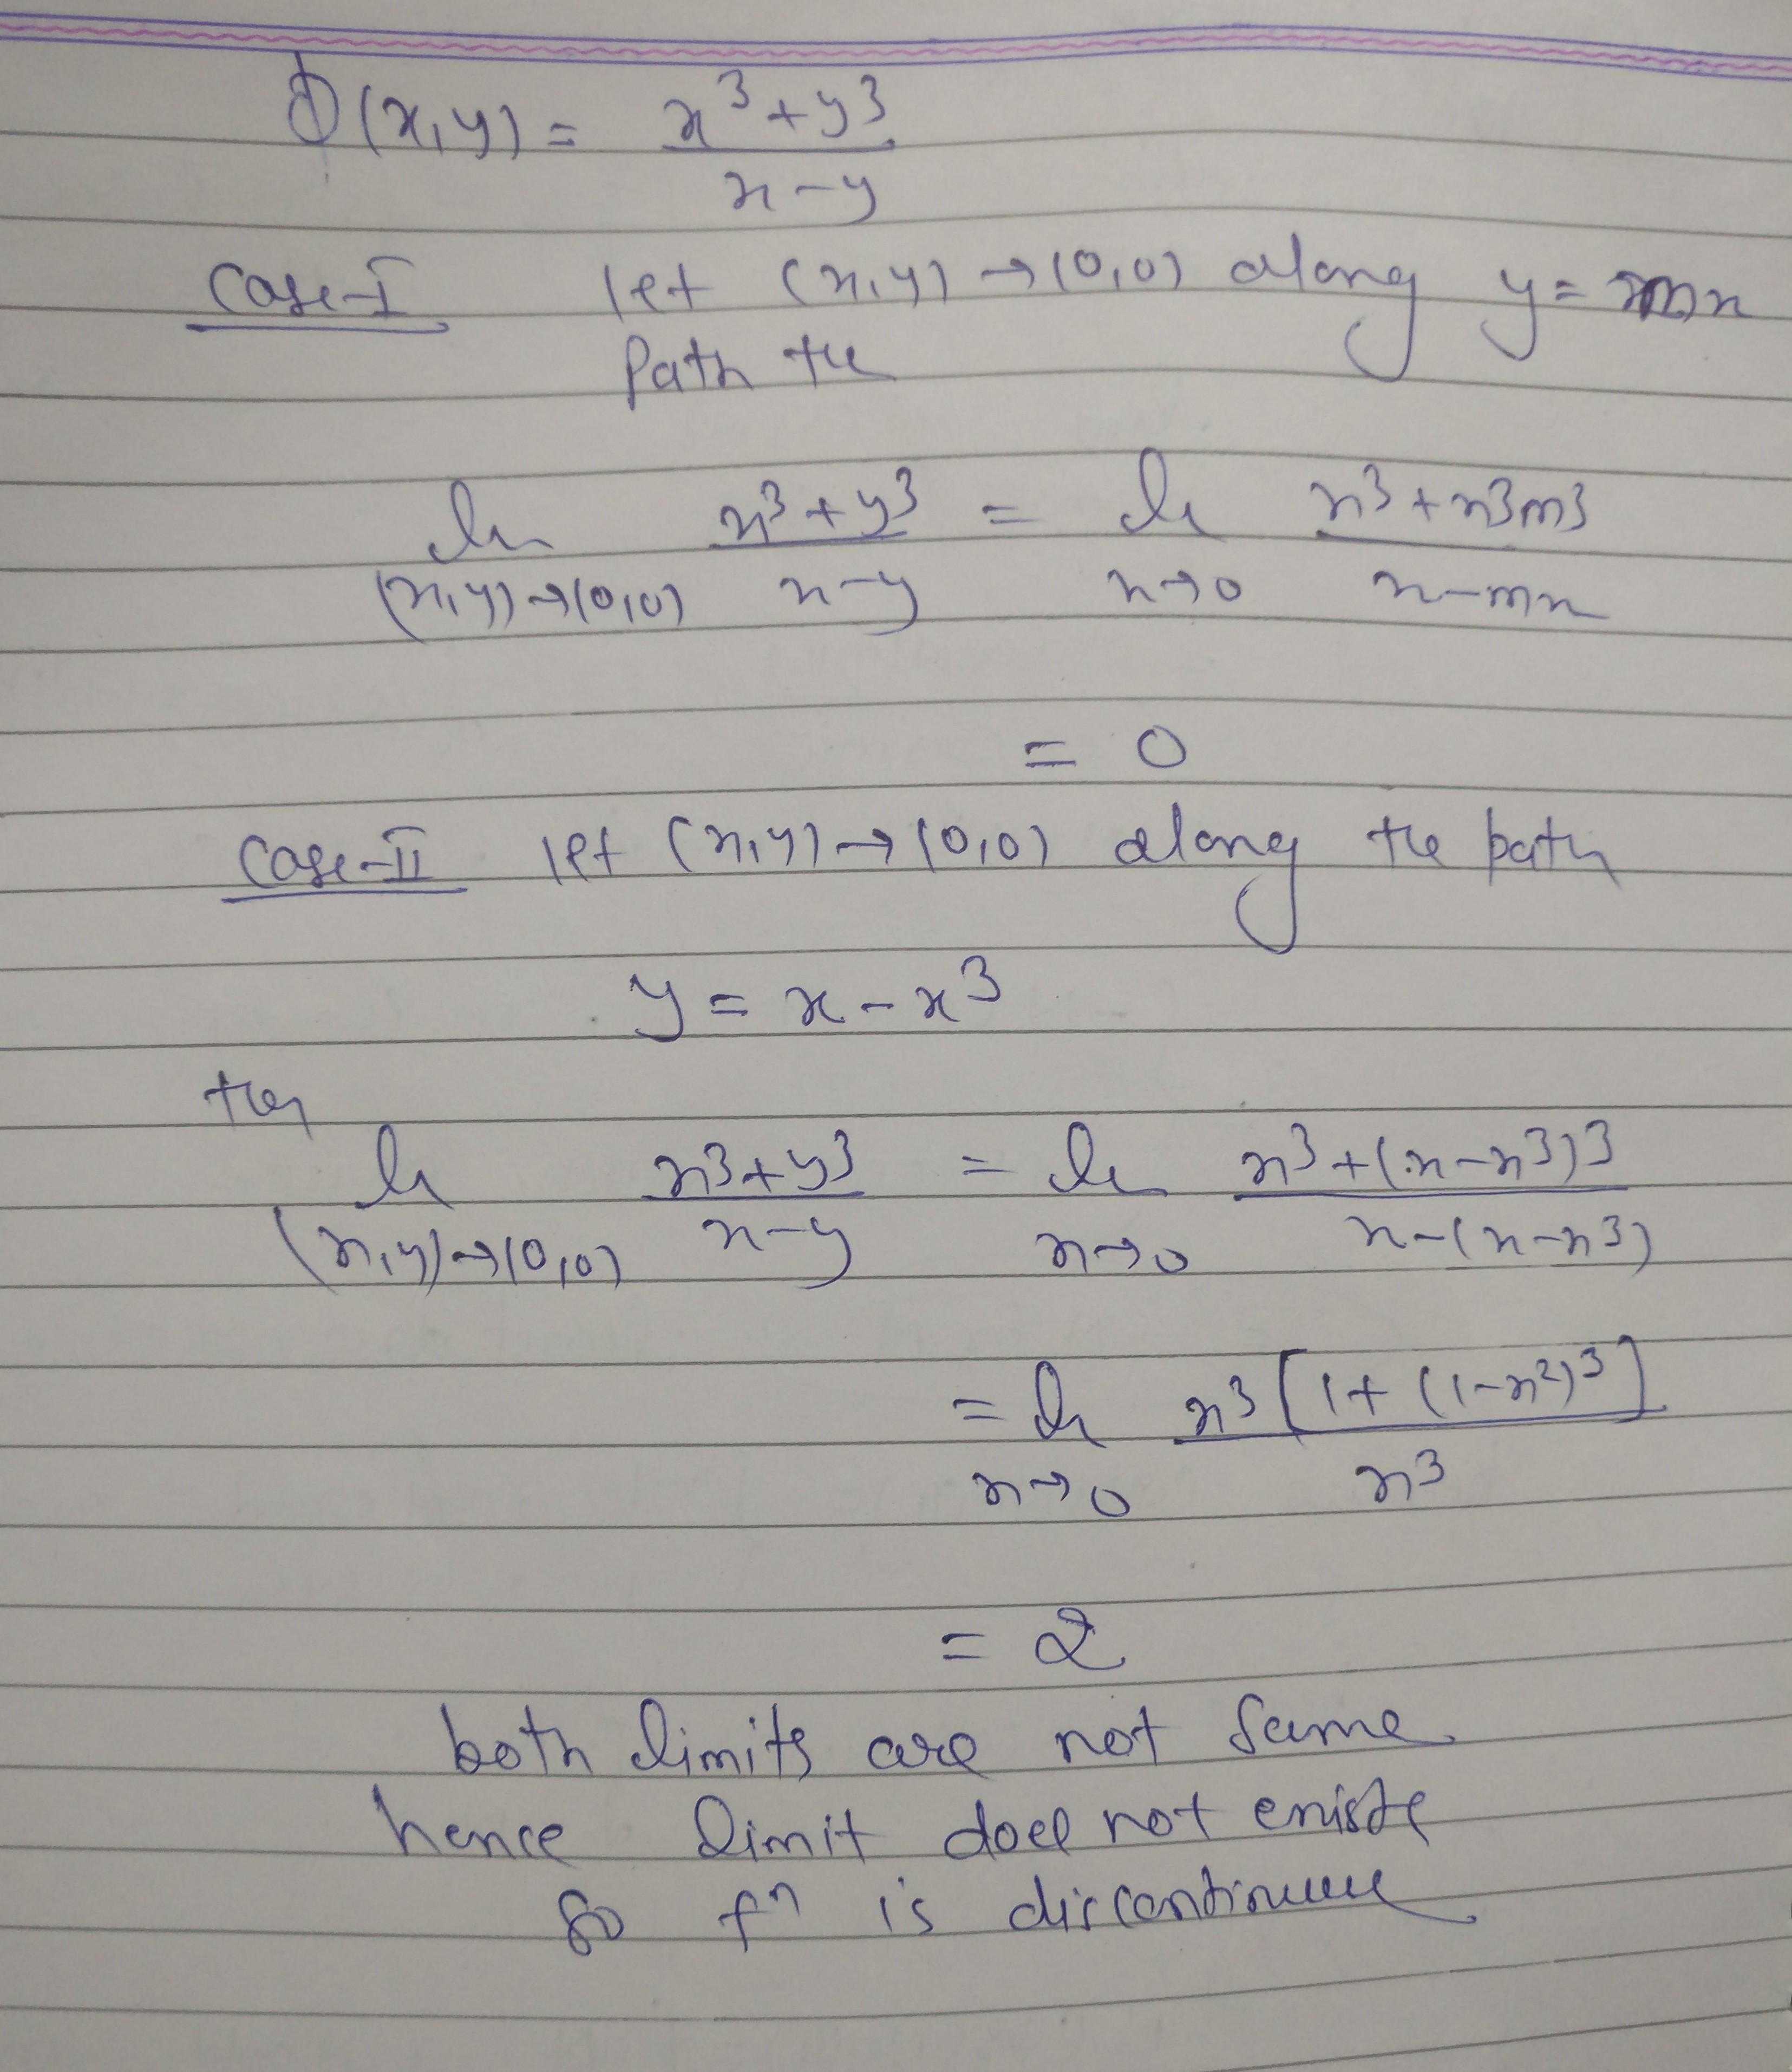 ϕ(x,y) = x³+y³ / x-y
Case-I let (x,y)→(0,0) along y=mx
Path the
lim (x,y)→(0,0) x³+y³ / x-y = lim x→0 x³+x³m³ / x-mx
= 0
Case-II let (x,y)→(0,0) along the path
y = x-x³
then
lim (x,y)→(0,0) x³+y³ / x-y = lim x→0 x³+(x-x³)³ / x-(x-x³)
= lim x→0 x³[1+(1-x²)³] / x³
= 2
both limits are not same
hence limit does not exists
so fⁿ is discontinuous